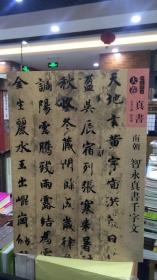 真書
南朝 智永真書千字文
天地玄黄宇宙洪荒日月
盈昃辰宿列張寒來暑往
秋收冬藏閏餘成歲律呂
調陽雲騰致雨露結為霜
金生麗水玉出崐崗